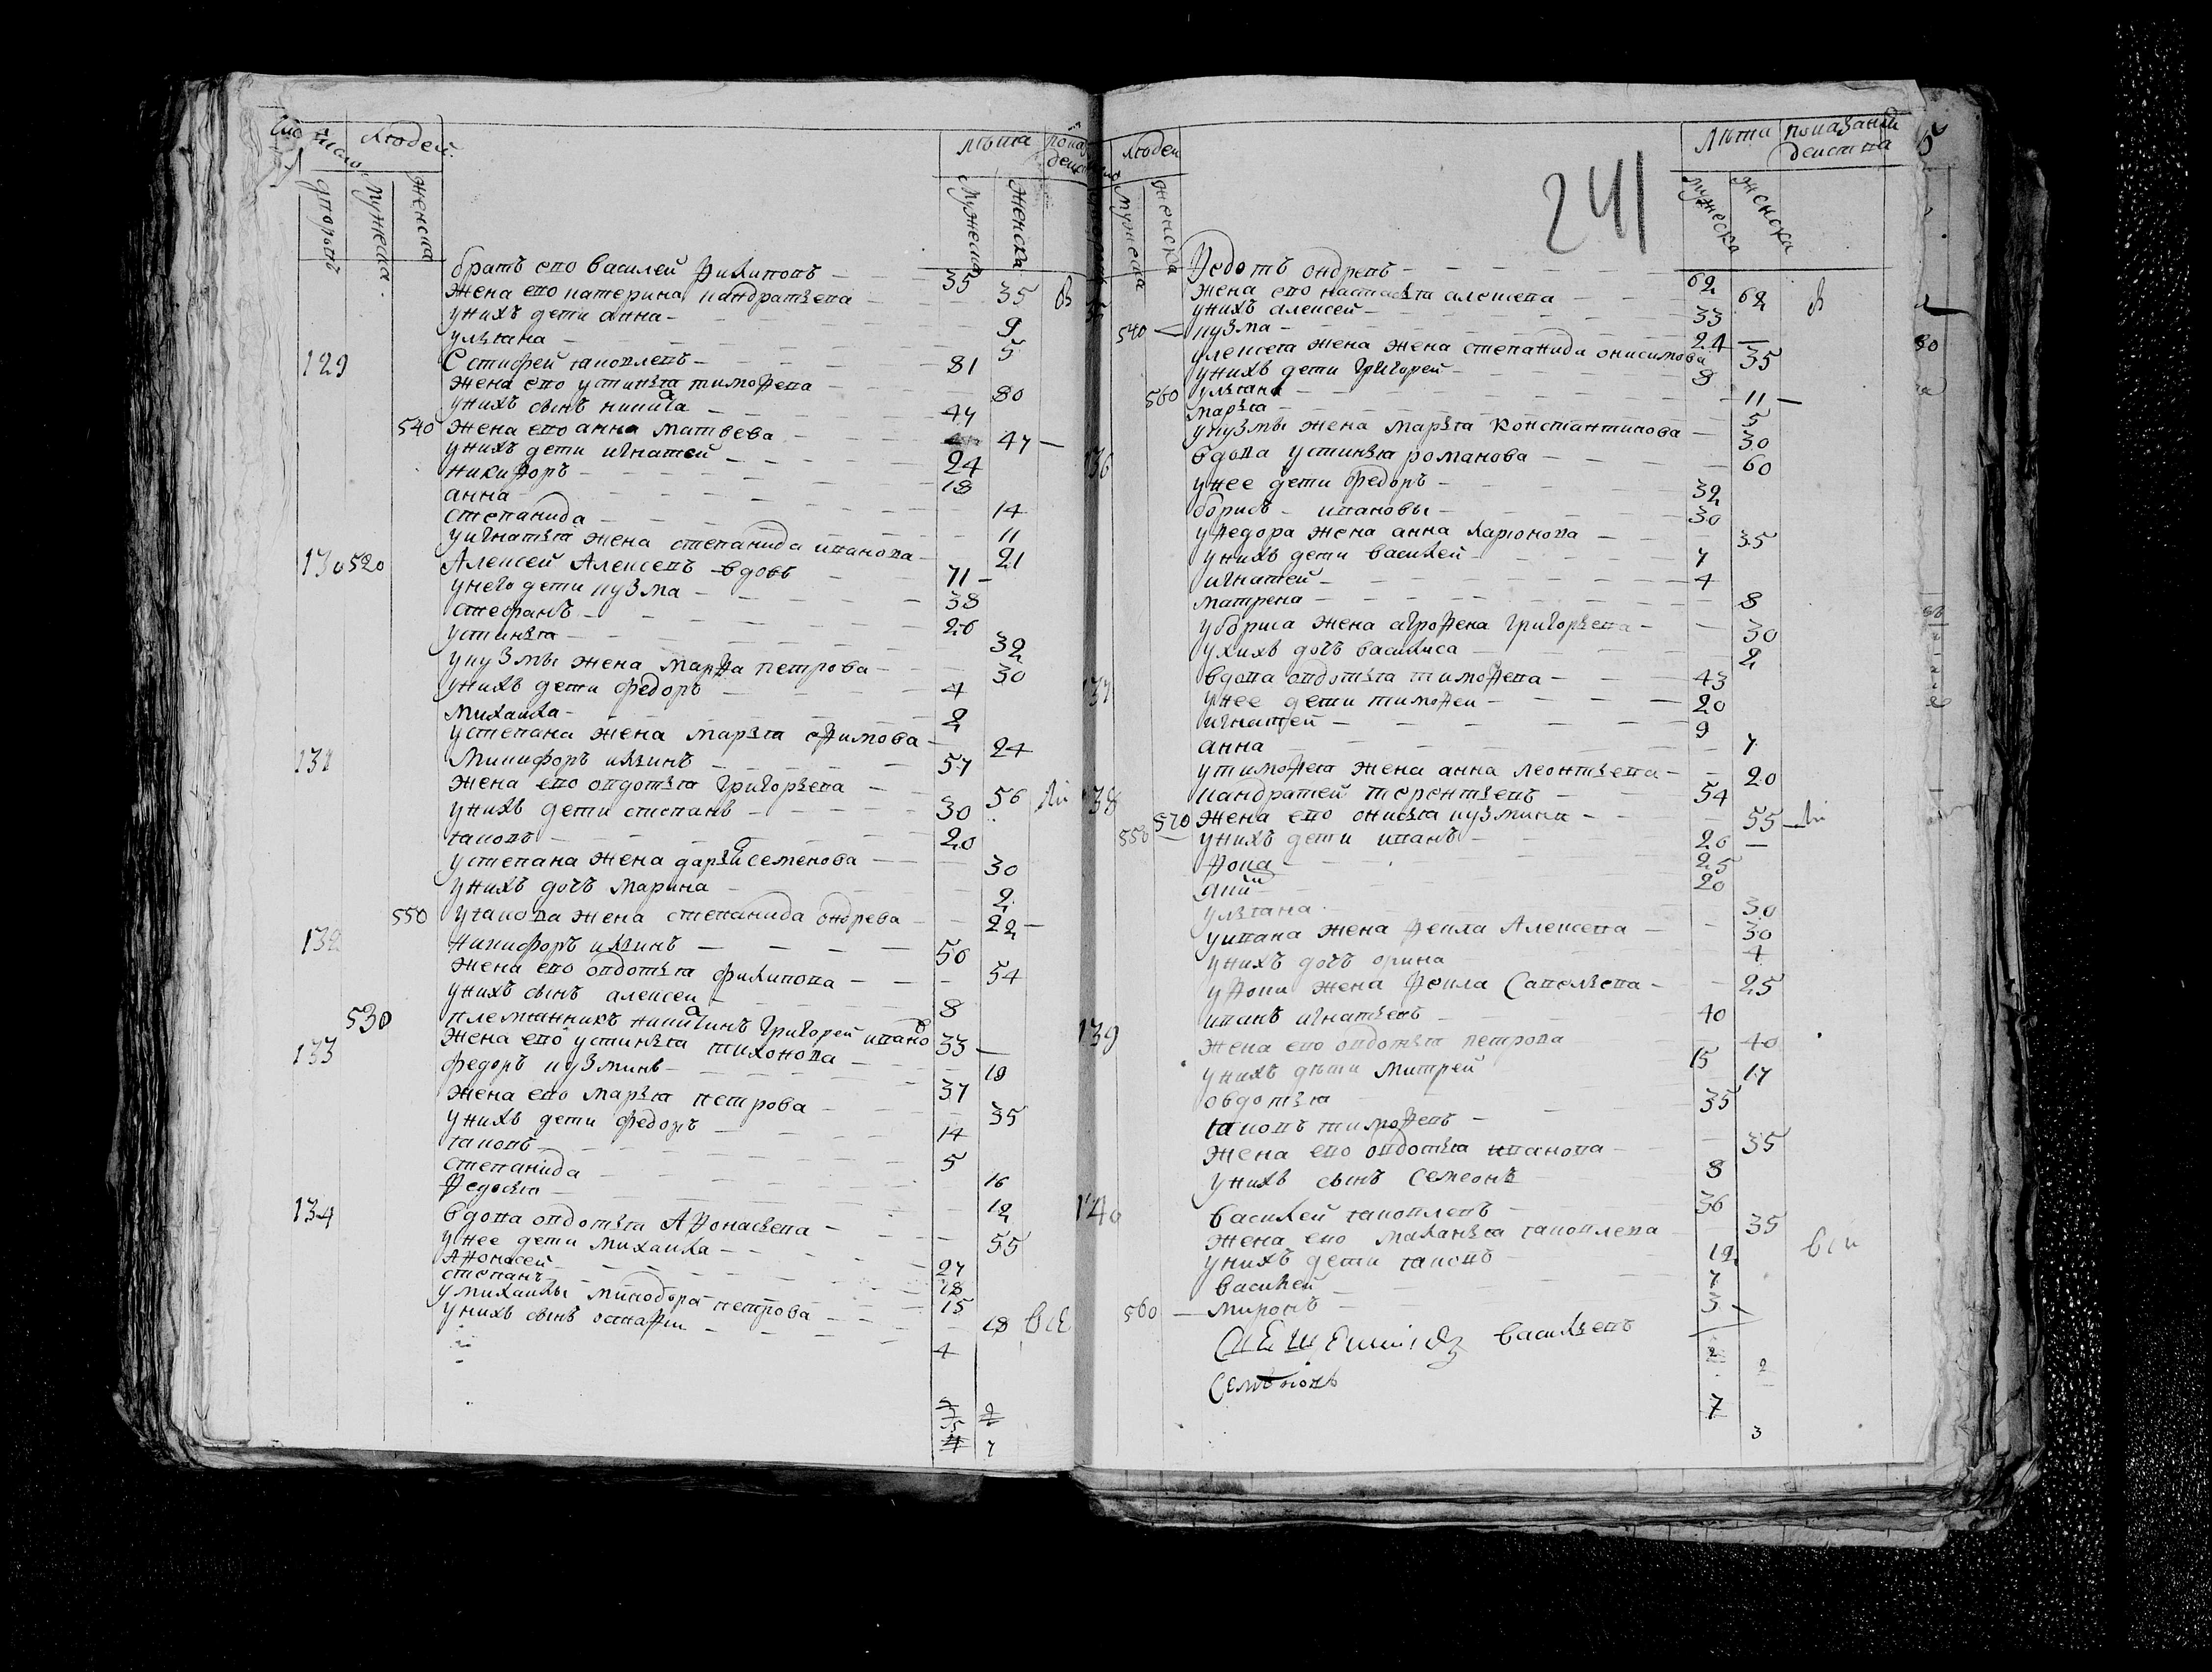 число людей лѣта показа
дворовъ мужеска женска мужеска женска
братъ ево василей филиповъ 35
жена ево катерина кандратьева 35 в
унихъ дети анна 9
ульяна 5
129 Стифей яковлевъ 81
жена ево устинья тимофева 80
унихъ сынъ никита 44
540 жена ево анна матвева 47
унихъ дети игнатей 24
никифоръ 18
анна 14
степанида 11
уигнатья жена степанида иванова 21
130 520 Алексей Алексевъ вдовъ 71
унего дети кузма 38
стефанъ 26
устинья 32
укузмы жена марфа петрова 30
унихъ дети федоръ 4
михаила 2
устепана жена марья ефимова 24
131 Микифоръ ильинъ 57
жена ево овдотья григорьева 56
унихъ дети степанъ 30
яковъ 20
устепана жена дарья семенова 30
унихъ дочь марина 2
550 уякова жена степанида ондрева 22
132 никифоръ ильинъ 56
жена ево овдотья филипова 54
унихъ сынъ алексей 8
530 племянникъ никитинъ григорей ивановъ 33
жена ево устинья тихонова 18
133 федоръ кузминъ 37
жена ево марья петрова 35
унихъ дети федоръ 14
яковъ 5
степанида 16
федосья 12
134 вдова овдотья Афонасьева 55
унее дети михаила 27
Афонасей 18
степанъ 15
умихаилы минодора петрова 18
унихъ сынъ остафи 4
людей лѣта показаний
действа
мужеска женска мужеска женска
241
Федотъ ондревъ 62
жена ево настасья алексева 62 в
унихъ алексей 33
540 кузма 24
уалексея жена жена степанида онисимова 35
унихъ дети григорей 8
560 ульяна 11
марья 5
укузмы жена марья константинова 30
136 вдова устинья романова 60
унее дети федоръ 32
борисъ ивановы 30
уфедора жена анна ларионова 35
унихъ дети василей 7
игнатей 4
матрена 8
убориса жена агрофена григорьева 30
ухихъ дочь василиса 2
137 вдова овдотья тимофева 43
унее дети тимофеи 20
игнатей 9
анна 7
утимофея жена анна леонтьева 20
138 кандратей терентьевъ 54
570 жена ево онисья кузмина 55
550 унихъ дети иванъ 26
фока 25
20
ульяна 30
уивана жена фекла Алексева 30
унихъ дочь орина 4
уфоки жена фекла Савельева 25
139 иванъ игнатьевъ 40
жена ево овдотья петрова 40
унихъ дѣти митрей 15
овдотья 17
яковъ тимофевъ 35
жена ево овдотья иванова 35
унихъ сынъ семеонъ 8
140 василей яковлевъ 36
жена ево маланья яковлева 35
унихъ дети яковъ 12
василей 7
560 миронъ 3
васильевъ
7
3